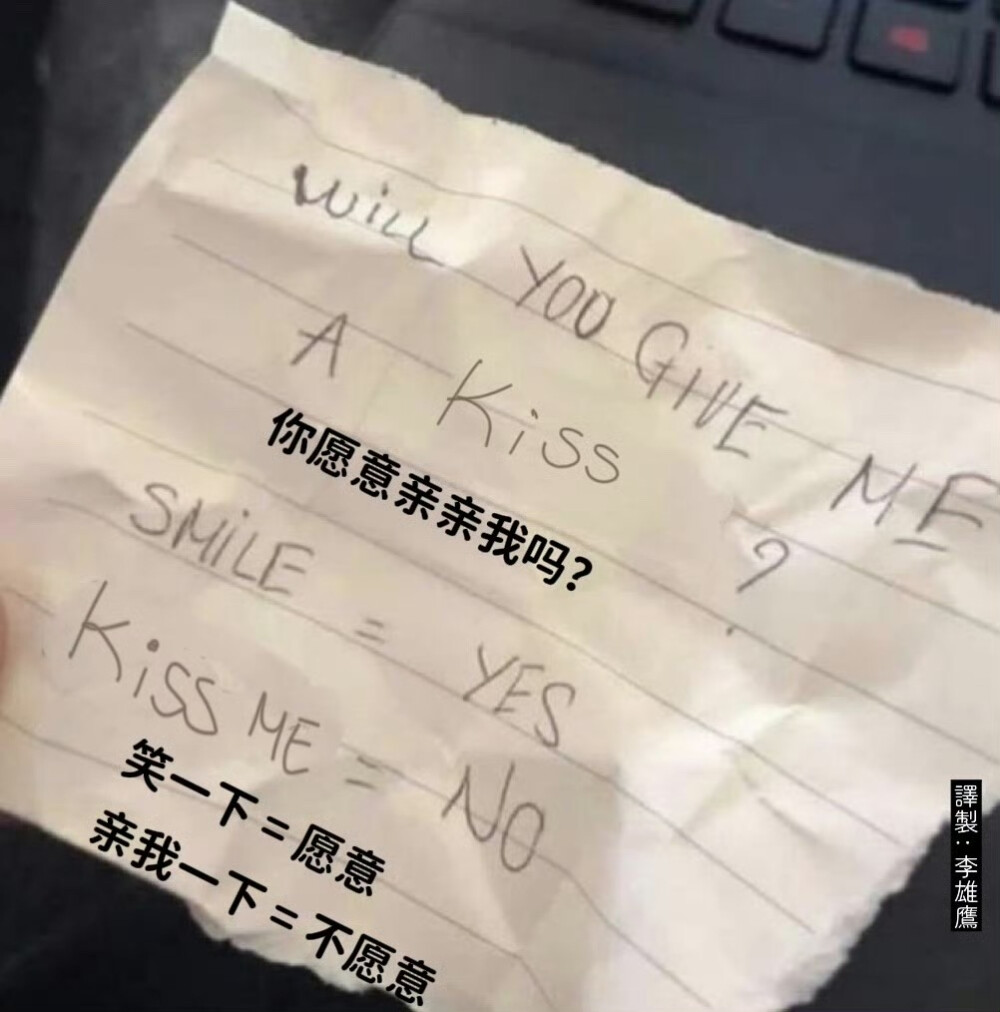 WiLL YOU GIVE ME
A KiSS ?
你愿意亲亲我吗?
SMiLE = YES
KiSS ME = NO
笑一下=愿意
亲我一下=不愿意
譯製:李雄鷹